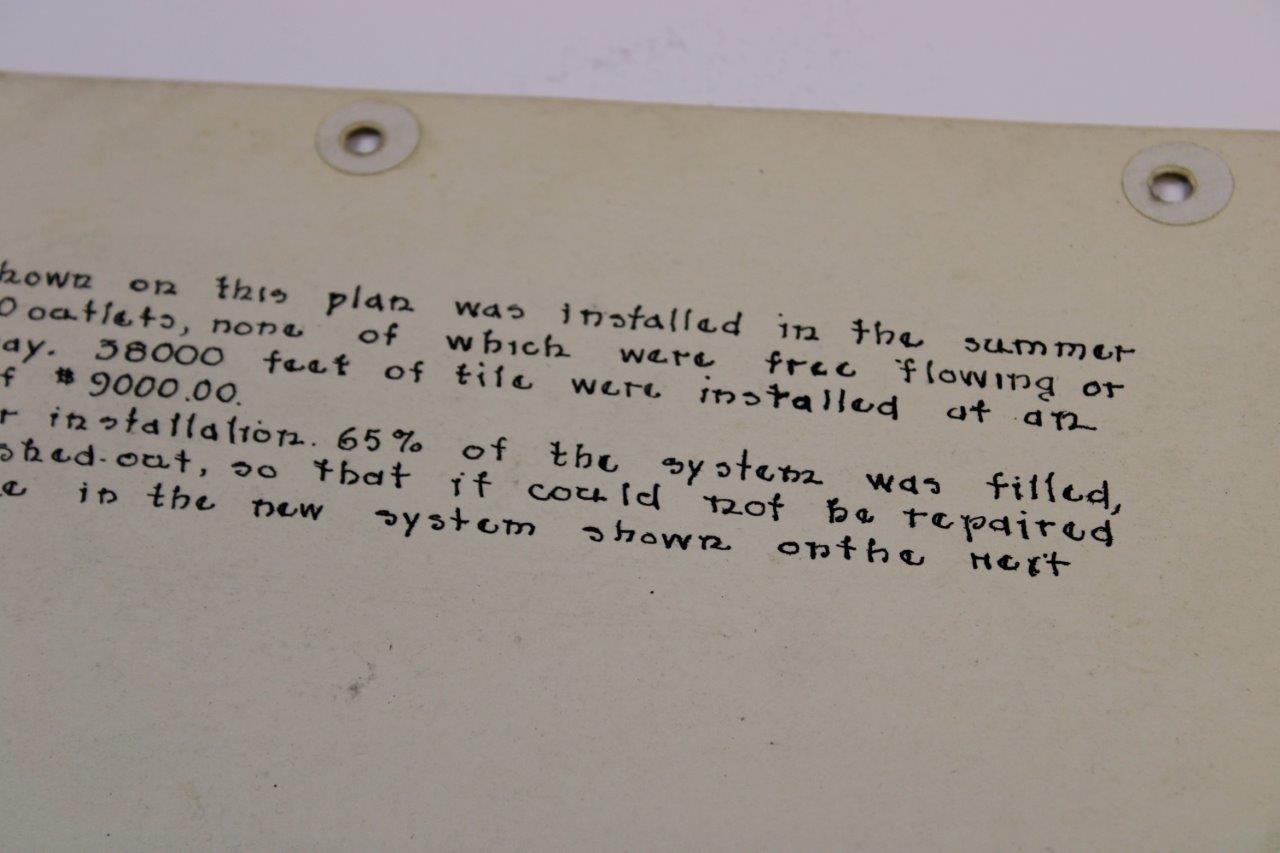 hown on this plan was installed in the summer
0 outlets, none of which were free flowing or
ay. 38000 feet of tile were installed at an
f $9000.00.
r installation. 65% of the system was filled,
shed-out, so that it could not be repaired
e in the new system shown onthe next